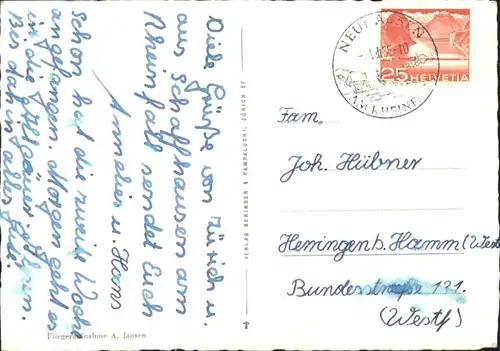 Viele Grüße von Zürich u.
aus Schaffhausen am
Rheinfall sendet Euch
Annelies u. Hans
Schon hat die zweite Woche
angefangen. Morgen geht es
in die Allgäuer Alpen.
Bis dahin alles Gute.
Fliegeraufnahme A. Jansen
VERLAG BERINGER & PAMPALUCHI, ZÜRICH 27
NEUHAUSEN
AM RHEINFALL
25 HELVETIA
Fam.
Joh. Hübner
Herringen b. Hamm (West
Bundesstraße 131.
(Westf)